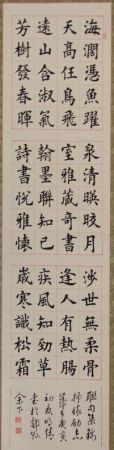 海濶憑魚躍
天高任鳥飛
遠山含淑氣
芳樹發春暉
泉清暎皎月
室雅藏奇書
翰墨聯知己
詩書悅雅懷
涉世無柔骨
逢人有熱腸
疾風知勁草
嵗寒識松霜
聯句集錦